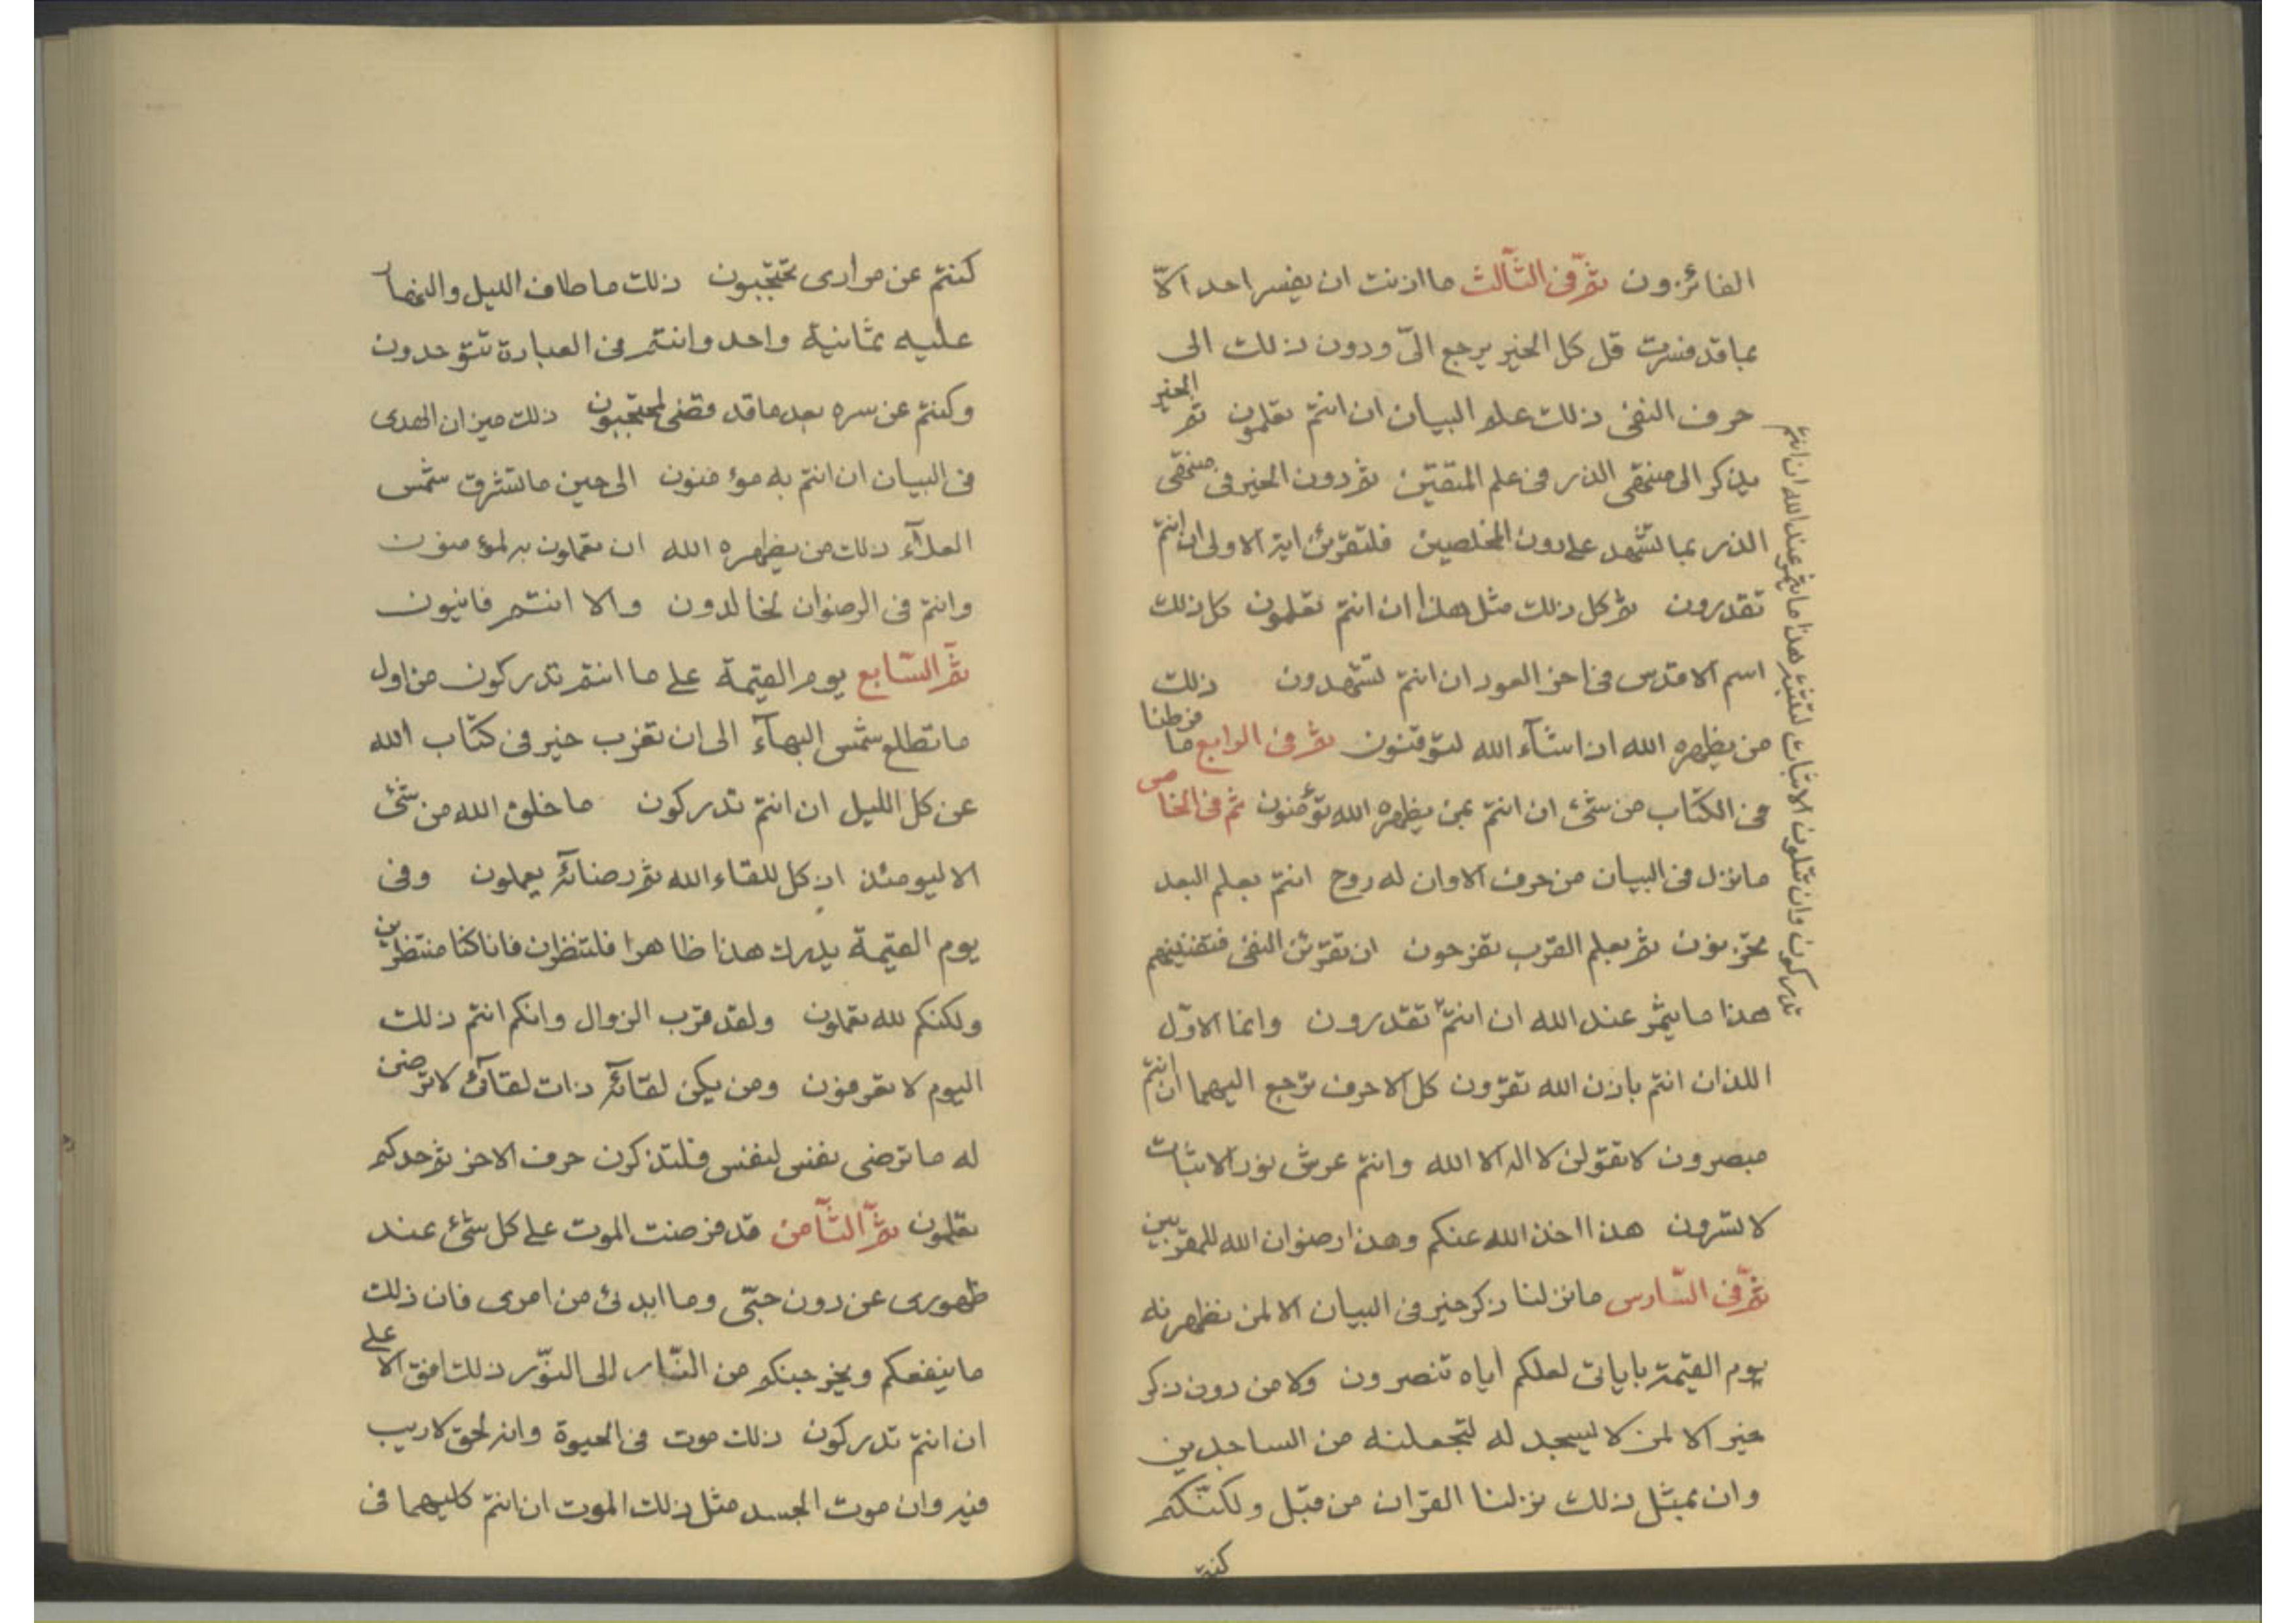 الفائزون ثمّ فی الثّالث ما اذنت ان یفسر احد الّا
بما قد فسرت قل کل الخیر یرجع الیّ ودون ذلک الی
حرف النفی ذلک علم البیان ان انتم تعلمون ثم الخیر
یذکر الی منتهی الذر فی علم المتقین ثم دون الخیر فی منتهی
الذر بما تشهد علی دون المخلصین فلتقرئن ایة الاولی ان انتم
تقدرون ثم کل ذلک مثل هذا ان انتم تعلمون کل ذلک
اسم الاقدس فی اخر العود ان انتم لتشهدون ذلک
من یظهره الله ان شآء الله لتوقنون ثم فی الرابع ما فرطنا
فی الکتاب من شئ ان انتم بمن یظهره الله تؤمنون ثم فی الخامس
ما نزل فی البیان من حرف الا وان له روح انتم بعلم البعد
تحزنون ثم بعلم القرب تفرحون ان تقرئن النفی فتفنینهم
هذا ما یثمر عند الله ان انتم تقدرون وانما الاوّل
اللذان انتم باذن الله تقرون کل الاحرف ترجع الیهما ان انتم
مبصرون لا تقولن لا اله الا الله وانتم عرش نور الاثبات
لا تسرون هذا اخذ الله عنکم وهذا رضوان الله للمقربین
ثمّ فی السّادس ما نزلنا ذکر خیر فی البیان الا لمن نظهرنه
یوم القیمة بایاتی لعلکم ایاه تنصرون ولا من دون ذکر
خیر الا لمن لا لیسجد له لتجعلنه من الساجدین
وان بمثل ذلک نزلنا القران من قبل ولکنّکم
کنتم
وان تتلون الاثبات لتثبتنهم هذا ما یثمر عند الله ان انتم تدرکون
کنتم عن مرادی تحتجبون ذلک ما طاف اللیل والنهار
علیه ثمانیة واحد وانتم فی العبادة تتوحدون
وکنتم عن سره بعد ما قد قضی لمحتجبون ذلک میزان الهدی
فی البیان ان انتم به مؤمنون الی حین ما تشرق شمس
العلآء ذلک من یظهره الله ان تعملون به لمؤمنون
وانتم فی الرضوان لخالدون والا انتم فانیون
ثمّ السّابع یوم القیمة علی ما انتم تدرکون من اول
ما تطلع شمس البهآء الی ان تغرب خیر فی کتاب الله
عن کل اللیل ان انتم تدرکون ما خلق الله من شئ
الا لیومئذ اذ کل للقاء الله ثم رضائه یعملون وفی
یوم القیمة یدرک هذا ظاهرا فلتنظرن فانا کنا منتظرین
ولکنکم لله تعملون ولقد قرب الزوال وانکم انتم ذلک
الیوم لا تعرفون ومن یکن لقائه ذات لقآئی لا ترضی
له ما ترضی نفس لنفس فلتذکرن حرف الاخر ثم حدکم
تعلمون ثمّ الثّامن قد فرضت الموت علی کل شئ عند
ظهوری عن دون حبّی وما ابدئ من امری فان ذلک
ما ینفعکم ویخرجنکم من النّار الی النّور ذلک افق الاعلی
ان انتم تدرکون ذلک موت فی الحیوة وانه لحق لا ریب
فیه وان موت الجسد مثل ذلک الموت ان انتم کلیهما فی